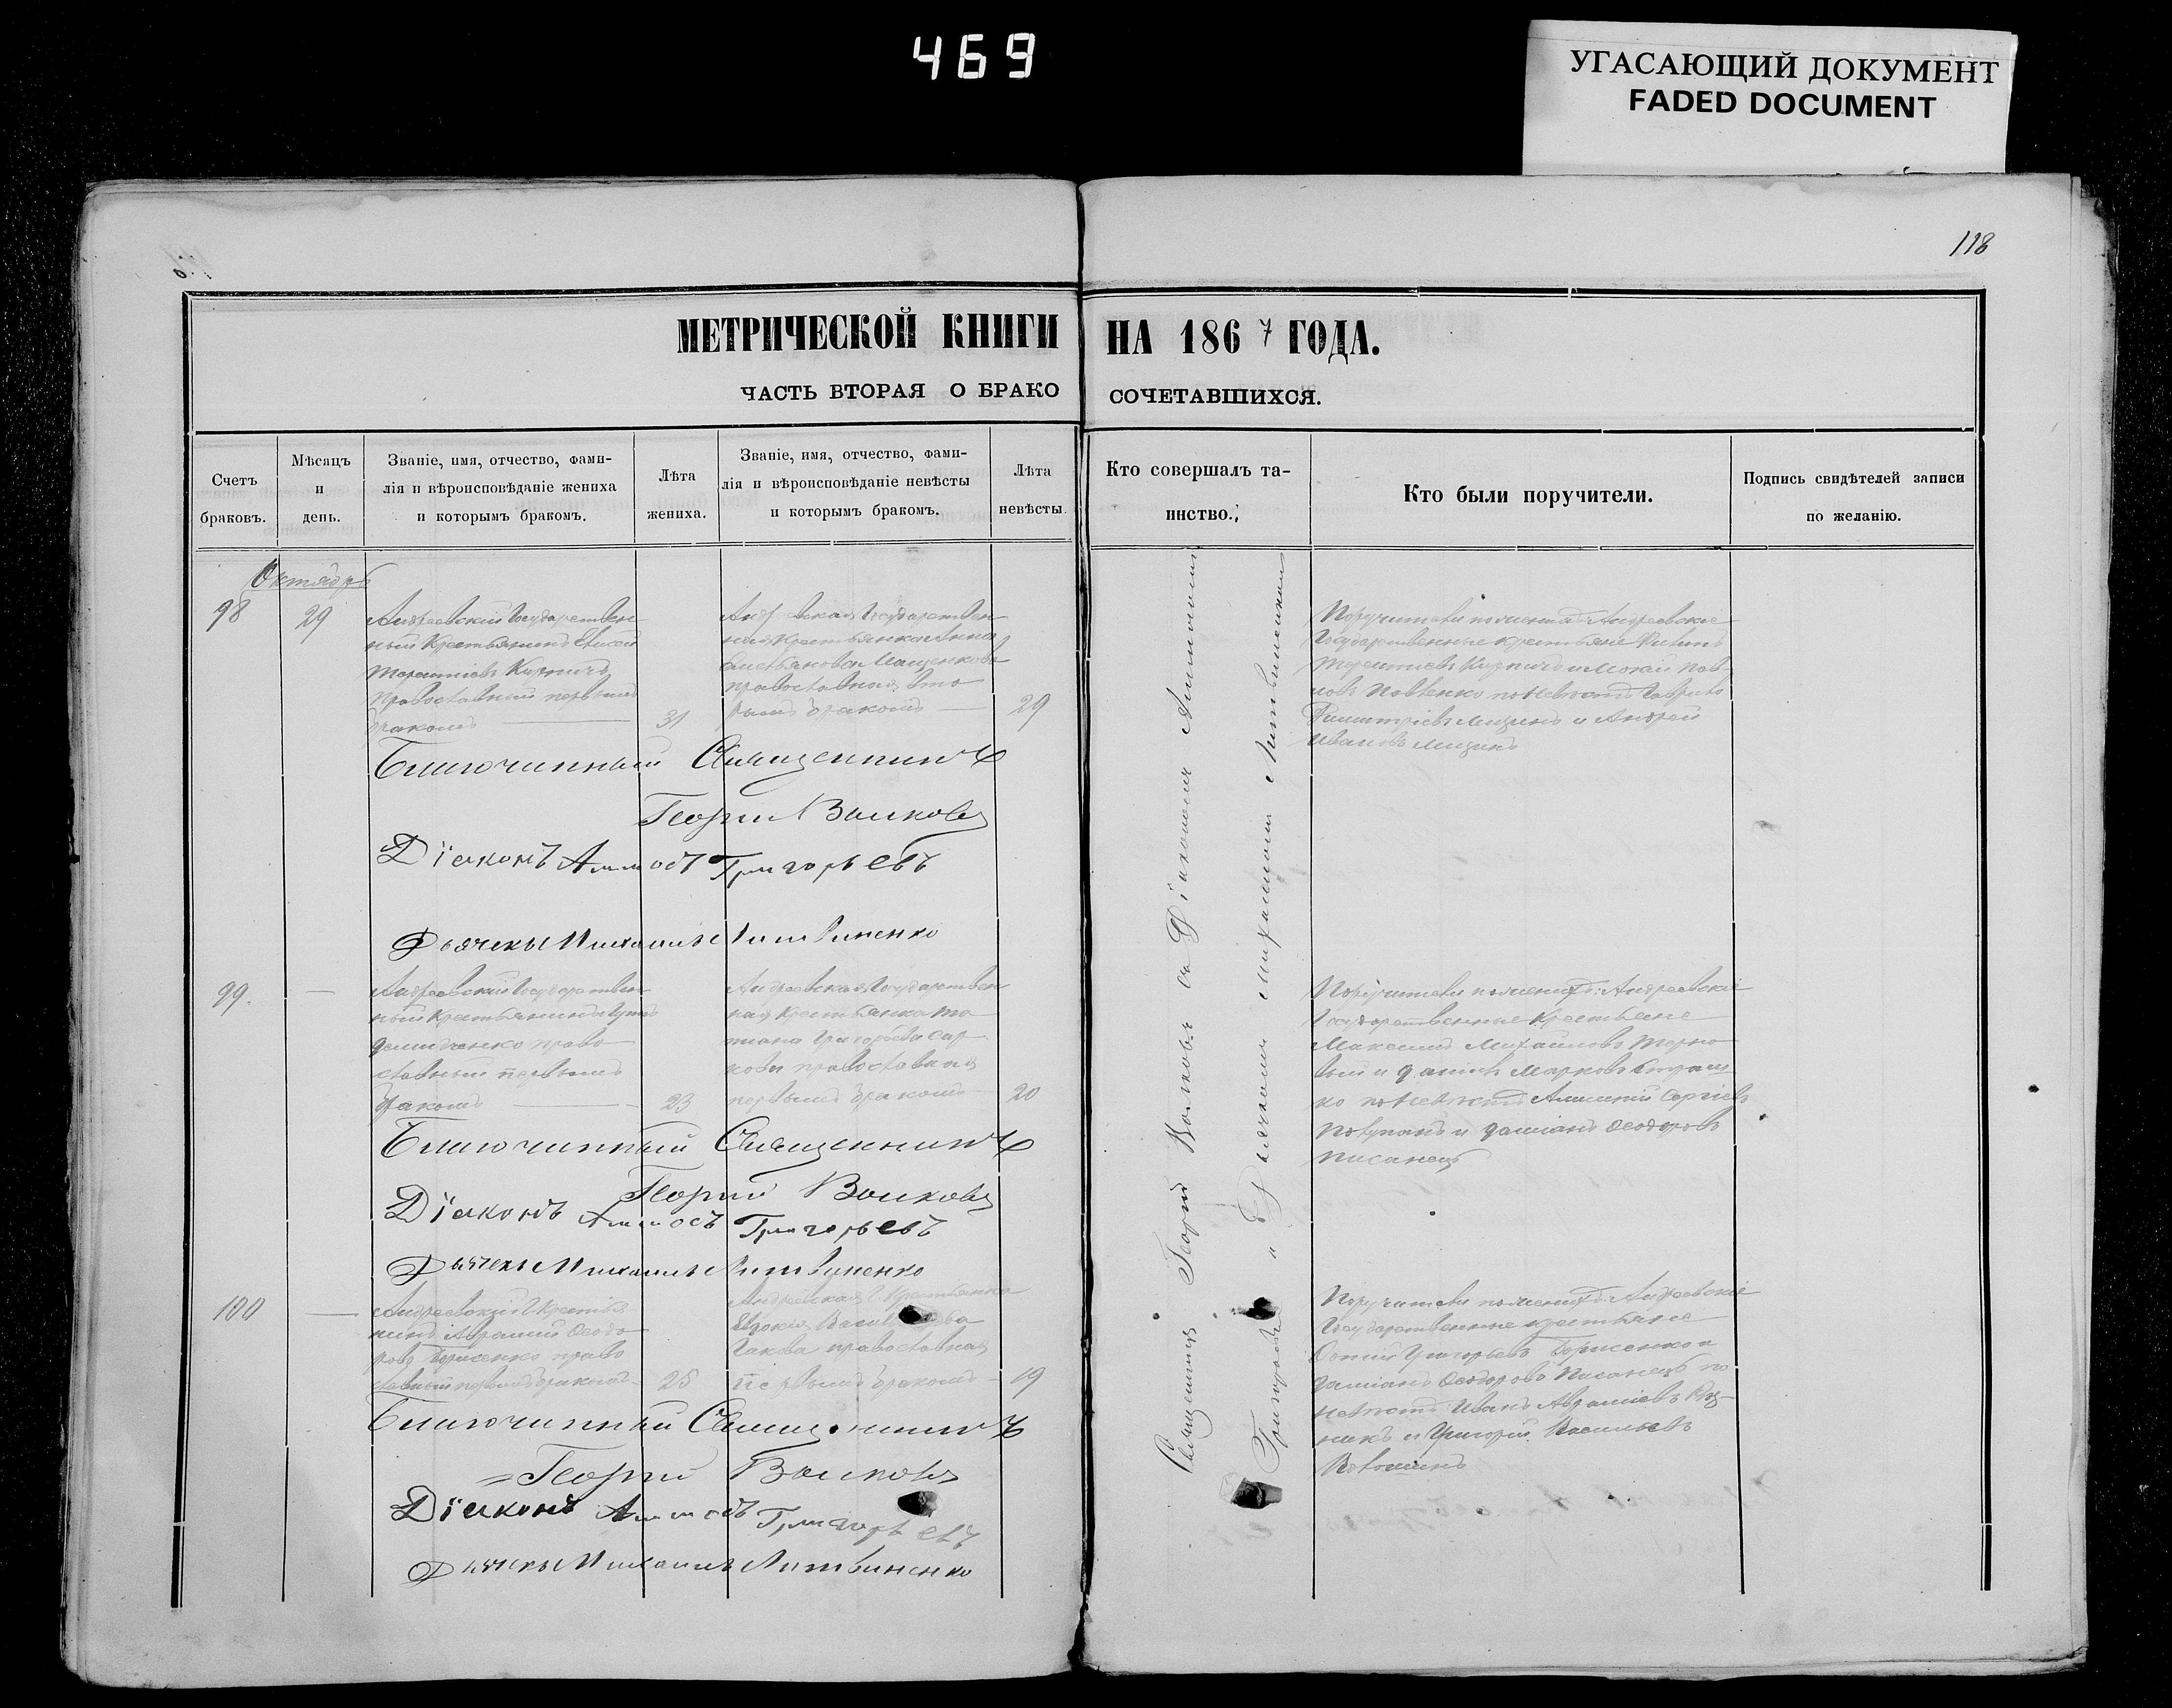 469
УГАСАЮЩИЙ ДОКУМЕНТ
FADED DOCUMENT
118
МЕТРИЧЕСКОЙ КНИГИ НА 1867 ГОДА.
ЧАСТЬ ВТОРАЯ О БРАКО СОЧЕТАВШИХСЯ.
Счетъ браковъ.
Мѣсяцъ и день.
Званіе, имя, отчество, фами-
лія и вѣроисповѣданіе жениха
и которымъ бракомъ.
Лѣта жениха.
Званіе, имя, отчество, фами-
лія и вѣроисповѣданіе невѣсты
и которымъ бракомъ.
Лѣта невѣсты.
Кто совершалъ та-
инство.
Кто были поручители.
Подпись свидѣтелей записи
по желанію.
Октябрь
98
29
Андреевскій Государствен-
ный Крестьянинъ
Терентіевъ Кирпичъ
православный первымъ
бракомъ
31
Андреевская Государствен
ная Крестьянка Анна
православная вто
рымъ бракомъ
29
Поручители по женихѣ Андреевскіе
Государственные крестьяне
Терентіевъ Кирпичъ и Мокій Пав
ловъ Павленко по невѣстѣ Гаврило
Димитріевъ и Андрей
Ивановъ
Благочинный Священникъ
Георгій Волковъ
Діаконъ Аммосъ Григорьевъ
Дьячекъ Михаилъ Литвиненко
99.
Андреевскій Государствен
ный Крестьянинъ
Демидченко право
славный первымъ
бракомъ
23
Андреевская Государствен
ная Крестьянка Та
тіана Григорьева
православная
первымъ бракомъ
20
Поручители по женихѣ: Андреевскіе
Государственные Крестьяне
Максимъ Михайловъ Терно
вый и Марковъ
по невѣстѣ Сергіевъ
и Даміанъ Ѳеодоровъ
Писанецъ
Благочинный Священникъ
Георгій Волковъ
Діаконъ Аммосъ Григорьевъ
Дьячекъ Михаилъ Литвиненко
100
Андреевскій Г. Крестья
нинъ Аврамій Ѳеодо
ровъ Борисенко право
славный первымъ бракомъ
25
Андреевская Г. Крестьянка
Евдокія
православная
первымъ бракомъ
19
Поручители по женихѣ: Андреевскіе
Государственные крестьяне
Григорьевъ Борисенко и
Даміанъ Ѳеодоровъ Писанецъ по
невѣстѣ: Иванъ Авраміевъ
и Григорій Васильевъ
Волошинъ
Благочинный Священникъ
Георгій Волковъ
Діаконъ Аммосъ Григорьевъ
Дьячекъ Михаилъ Литвиненко
Священникъ Георгій Волковъ съ Діакономъ Аммосомъ
Григорьевымъ и Дьячкомъ Михаиломъ Литвиненкомъ